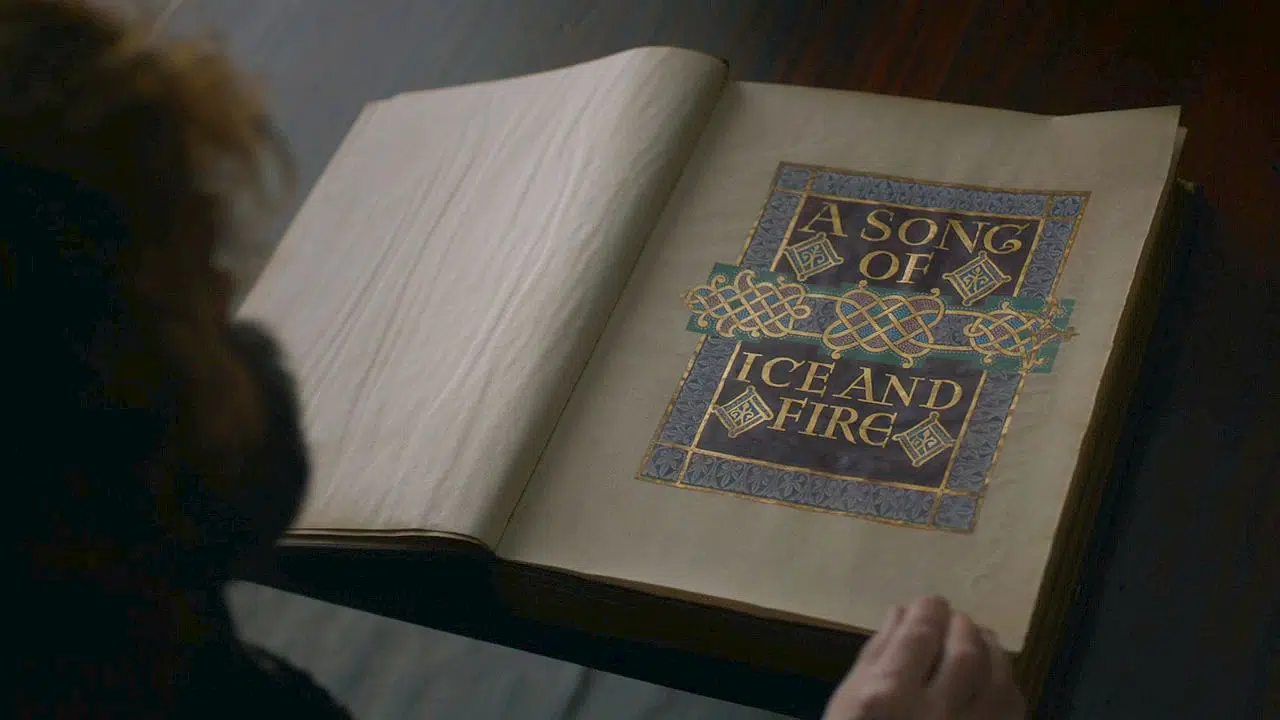 A SONG
OF
ICE AND
FIRE